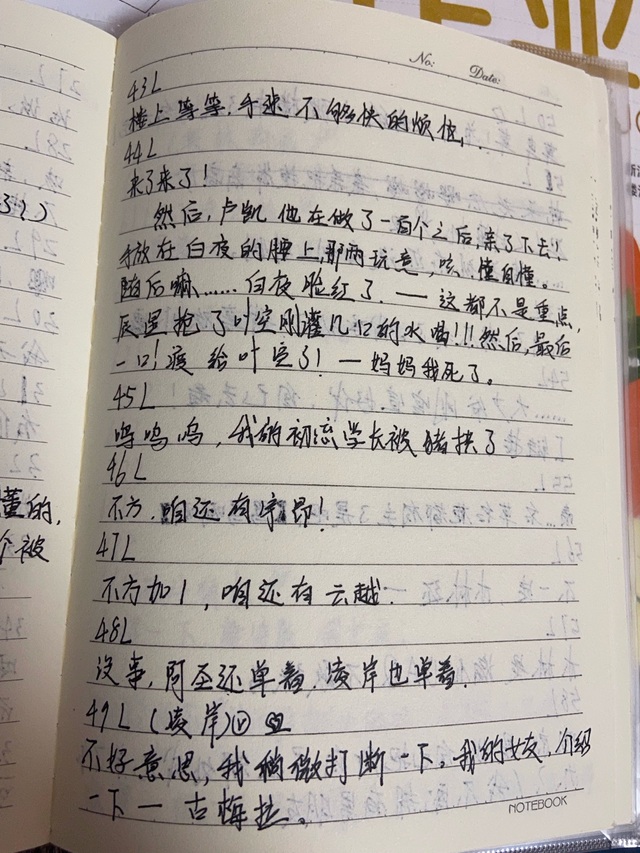 No: Date:
43L
楼上等等,手速不够快的烦恼...
44L
来了来了!
然后,卢凯他在做了一百个之后,亲了下去!
手放在白夜的腰上,那两玩意,咳,懂自懂。
随后嘛……白夜脸红了.——这都不是重点,
辰星抢了叶空刚灌几口的水喝!!!然后,最后
一口!渡给叶空了!—妈妈我死了。
45L
呜呜呜,我的初流学长被猪拱了
46L
不方,咱还有宇昂!
47L
不方加1,咱还有云越.
48L
没事,阿圣还单着,凌岸也单着.
49L(凌岸)
不好意思,我稍微打断一下。我的女友,介绍
一下—古梅拉。
NOTEBOOK
董的,
个被